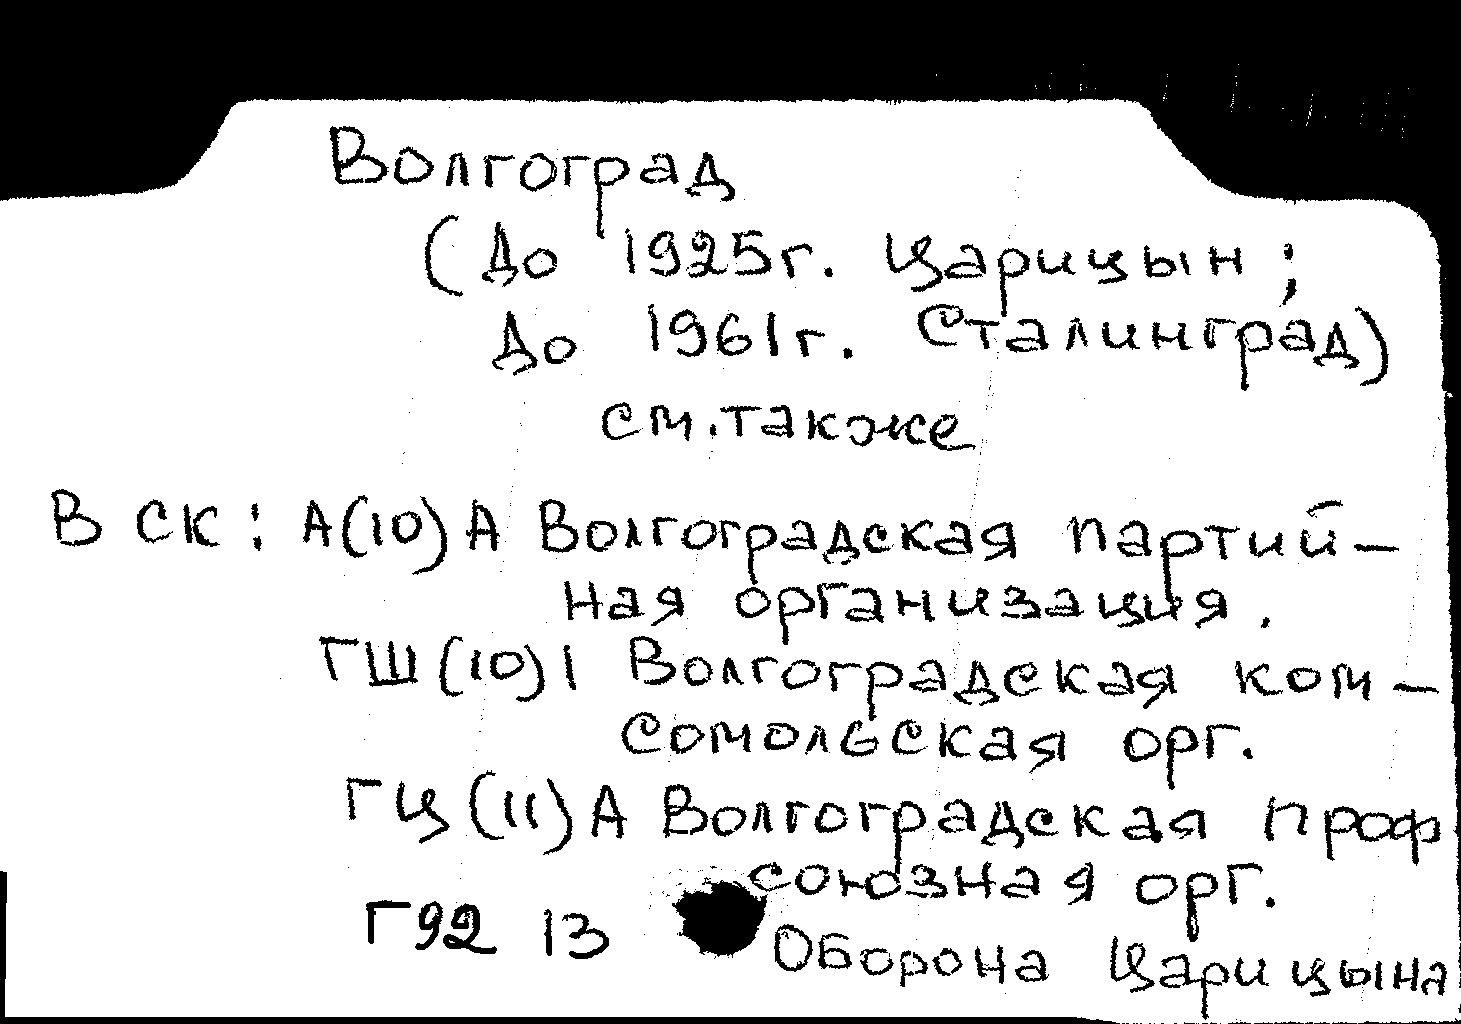 Волгоград
(До 1925г. Царицын;
До 1961г. Сталинград)
см. также
В СК: А(10)А Волгоградская партий-
ная организация.
ГШ(10)1 Волгоградская ком-
сомольская орг.
ГЦ(11)А Волгоградская проф
союзная орг.
Г92 13 Оборона Царицына